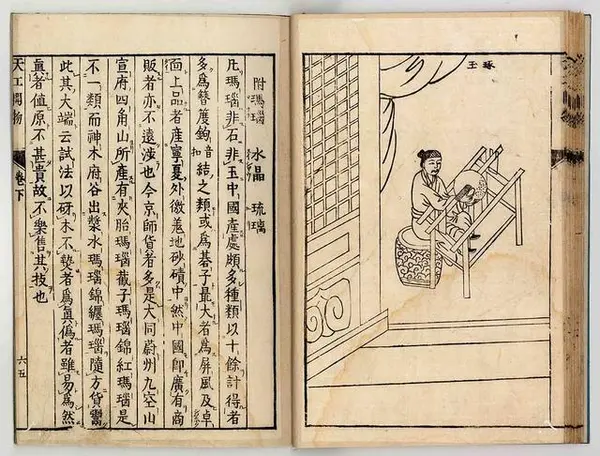 琢玉
附瑪瑙 水晶 琉璃
凡瑪瑙非石非玉中國產處頗多種類以十餘計得者
多爲簪鉤音扣結之類或爲棊子最大者爲屏風及卓
面上品者產寧夏外徼羌地砂磧中然中國卽廣有商
販者亦不遠涉也今京師貨者多是大同蔚州九空山
宣府四角山所產有夾胎瑪瑙截子瑪瑙錦紅瑪瑙是
不一類而神木府谷出漿水瑪瑙錦纏瑪瑙隨方貨鬻
此其大端云試法以砑木不熱者爲眞僞者雖易爲然
眞者値原不甚貴故不樂售其技也
天工開物 卷下 六五